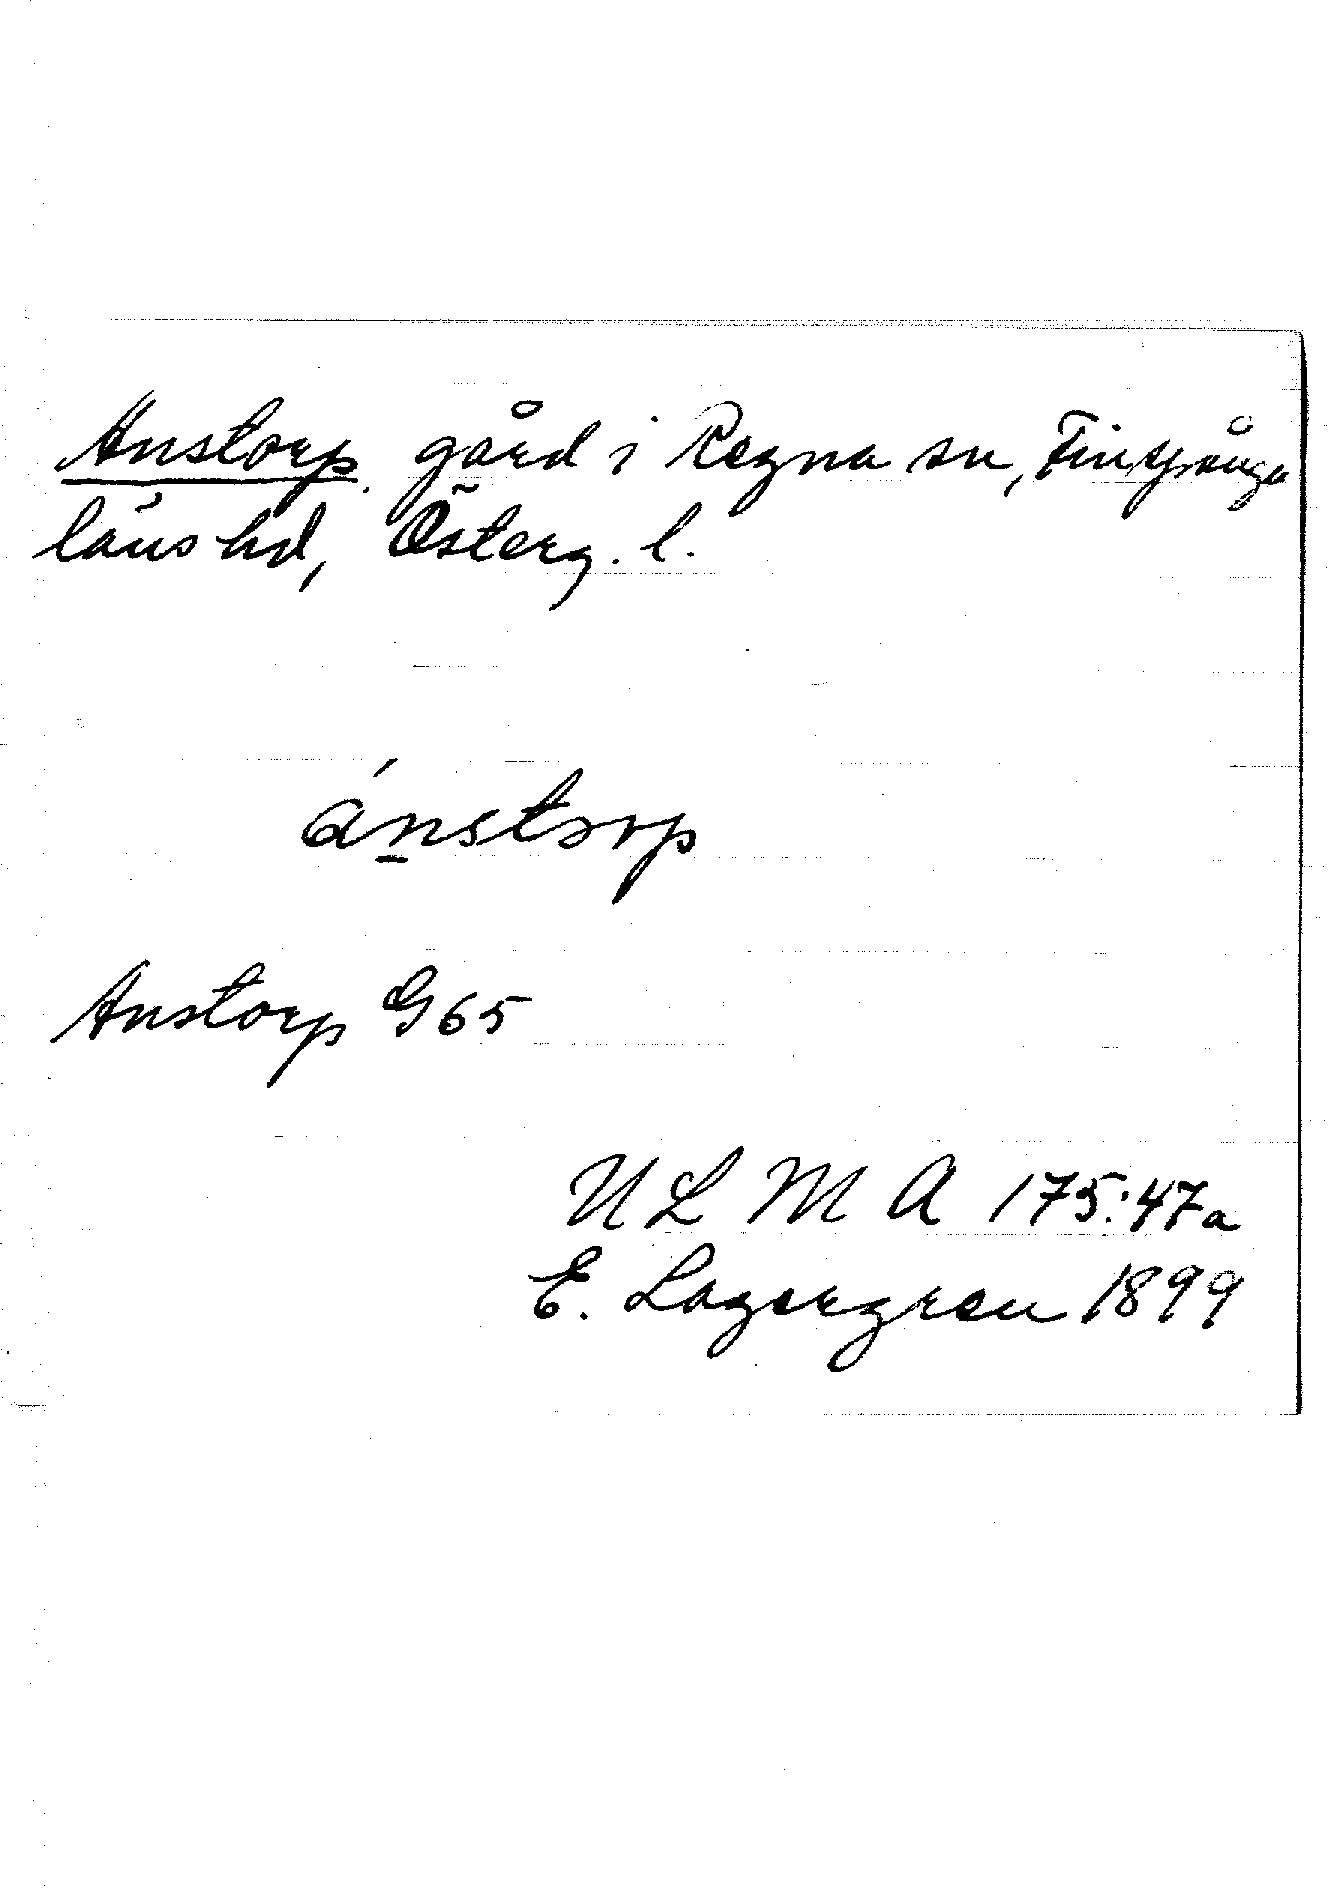 Anstorp, gård i Regna sn, Finspånga
läns hd, Österg. l.
ánstorp
Anstorp G65
ULMA 175:47a
E. Lagergren 1899